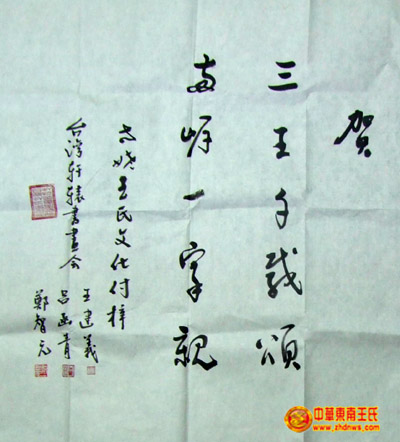 賀
三王千載頌
两岸一家親
王氏文化付梓
台灣軒轅書畫會
王建義
呂青
鄭智元
中華東南王氏
www.zhdnws.com